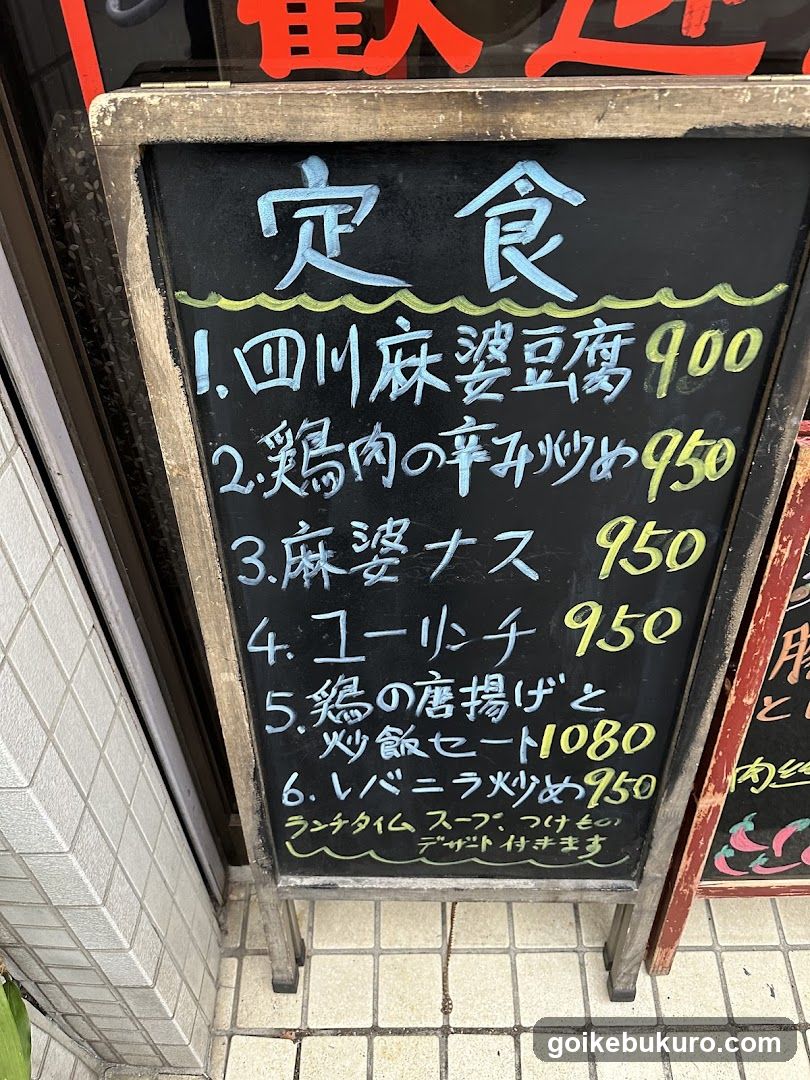 歓迎
定食
1.四川麻婆豆腐 900
2.鶏肉の辛み炒め 950
3.麻婆ナス 950
4.ユーリンチ 950
5.鶏の唐揚げと
炒飯セート 1080
6.レバニラ炒め 950
ランチタイム スープ、つけもの
デザート付きます
と
肉
goikebukuro.com